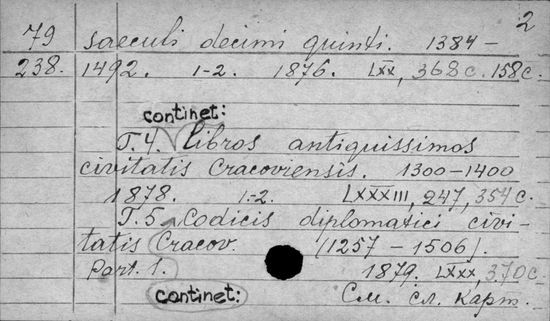 2
79 saeculi decimi quinti. 1384 –
238. 1492. 1-2. 1876. LXX, 368 с. 158 с.
continet:
T. 4. Libros antiquissimos
civitatis Cracoviensis. 1300–1400
1878. 1-2. LXXXIII, 247, 354 с.
T. 5 Codicis diplomatici civi-
tatis Cracov. (1257 – 1506).
Part. 1. 1879. LXXX, 370 с.
continet: См. сл. карт.